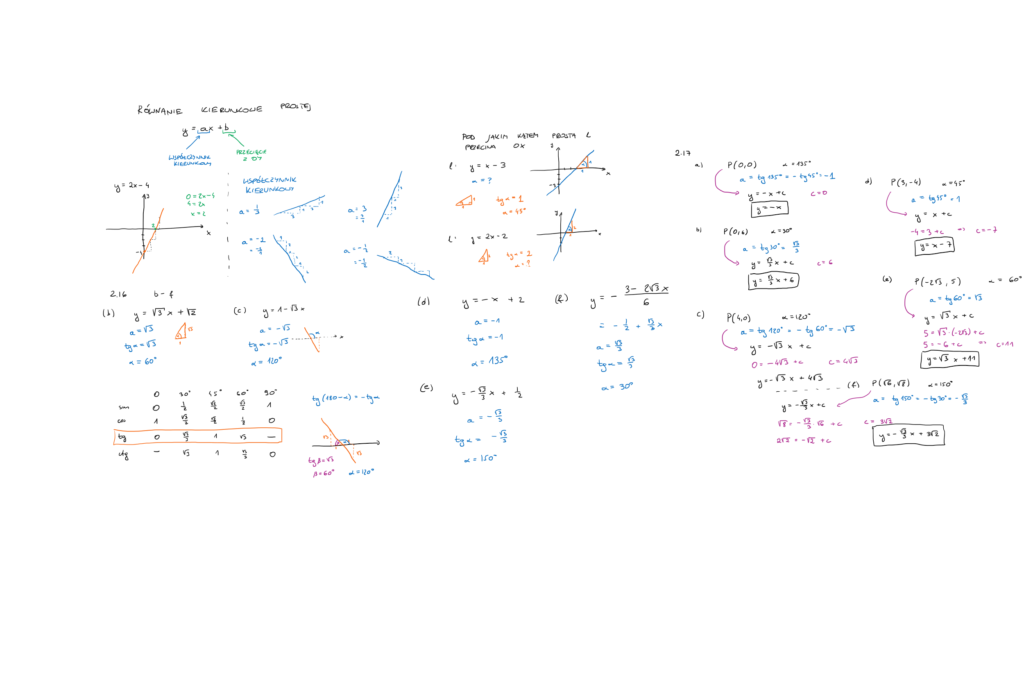 RÓWNANIE KIERUNKOWE PROSTEJ
y = ax + b
WSPÓŁCZYNNIK KIERUNKOWY
PRZECIĘCIE Z OY
y = 2x - 4
0 = 2x - 4
4 = 2x
x = 2
x
WSPÓŁCZYNNIK KIERUNKOWY
a = 1/3
a = 3
= 3/1
a = -1
a = -1/2
POD JAKIM KĄTEM PROSTA l
PRZECINA OX
l: y = x - 3
α = ?
tg α = 1
α = 45°
l: y = 2x - 2
tg α = 2
α = ?
2.16 b - f
(b) y = √3 x + √2
a = √3
tg α = √3
α = 60°
(c) y = 1 - √3 x
a = -√3
tg α = -√3
α = 120°
(d) y = -x + 2
a = -1
tg α = -1
α = 135°
(f) y = - (3 - 2√3 x)/6
= -1/2 + √3/3 x
a = √3/3
tg α = √3/3
α = 30°
(e) y = -√3/3 x + 1/2
a = -√3/3
tg α = -√3/3
α = 150°
0 30° 45° 60° 90°
sin 0 1/2 √2/2 √3/2 1
cos 1 √3/2 √2/2 1/2 0
tg 0 √3/3 1 √3 —
ctg — √3 1 √3/3 0
tg(180 - α) = -tg α
tg β = √3
β = 60° α = 120°
2.17
a) P(0,0) α = 135°
a = tg 135° = -tg 45° = -1
y = -x + c c = 0
y = -x
b) P(0,6) α = 30°
a = tg 30° = √3/3
y = √3/3 x + c c = 6
y = √3/3 x + 6
c) P(4,0) α = 120°
a = tg 120° = -tg 60° = -√3
y = -√3 x + c
0 = -4√3 + c c = 4√3
y = -√3 x + 4√3
d) P(3,-4) α = 45°
a = tg 45° = 1
y = x + c
-4 = 3 + c => c = -7
y = x - 7
(e) P(-2√3, 5) α = 60°
a = tg 60° = √3
y = √3 x + c
5 = √3·(-2√3) + c
5 = -6 + c => c = 11
y = √3 x + 11
(f) P(√6, √8) α = 150°
a = tg 150° = -tg 30° = -√3/3
y = -√3/3 x + c
√8 = -√3/3 · √6 + c
2√2 = -√2 + c
c = 3√2
y = -√3/3 x + 3√2